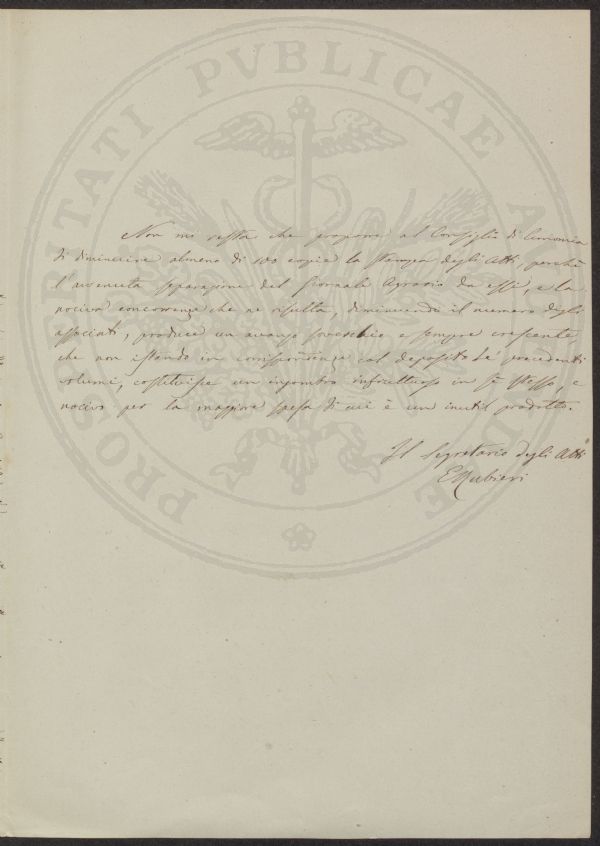 PROSPERITATI PVBLICAE AVGENDAE
Non mi resta che proporre al Consiglio di Economia
di diminuire almeno di 100 copie la stampa degli Atti, perchè
l'avvenuta separazione del Giornale Agrario da essi, e la
nociva concorrenza che ne risulta, diminuendo il numero degli
associati, produce un avanzo soverchio e sempre crescente
che non istando in corrispondenza col deposito de' precedenti
volumi, costituisce un ingombro infruttuoso in se stesso, e
nocivo per la maggiore spesa di cui è un inutil prodotto.
Il Segretario degli Atti
E Rubieri